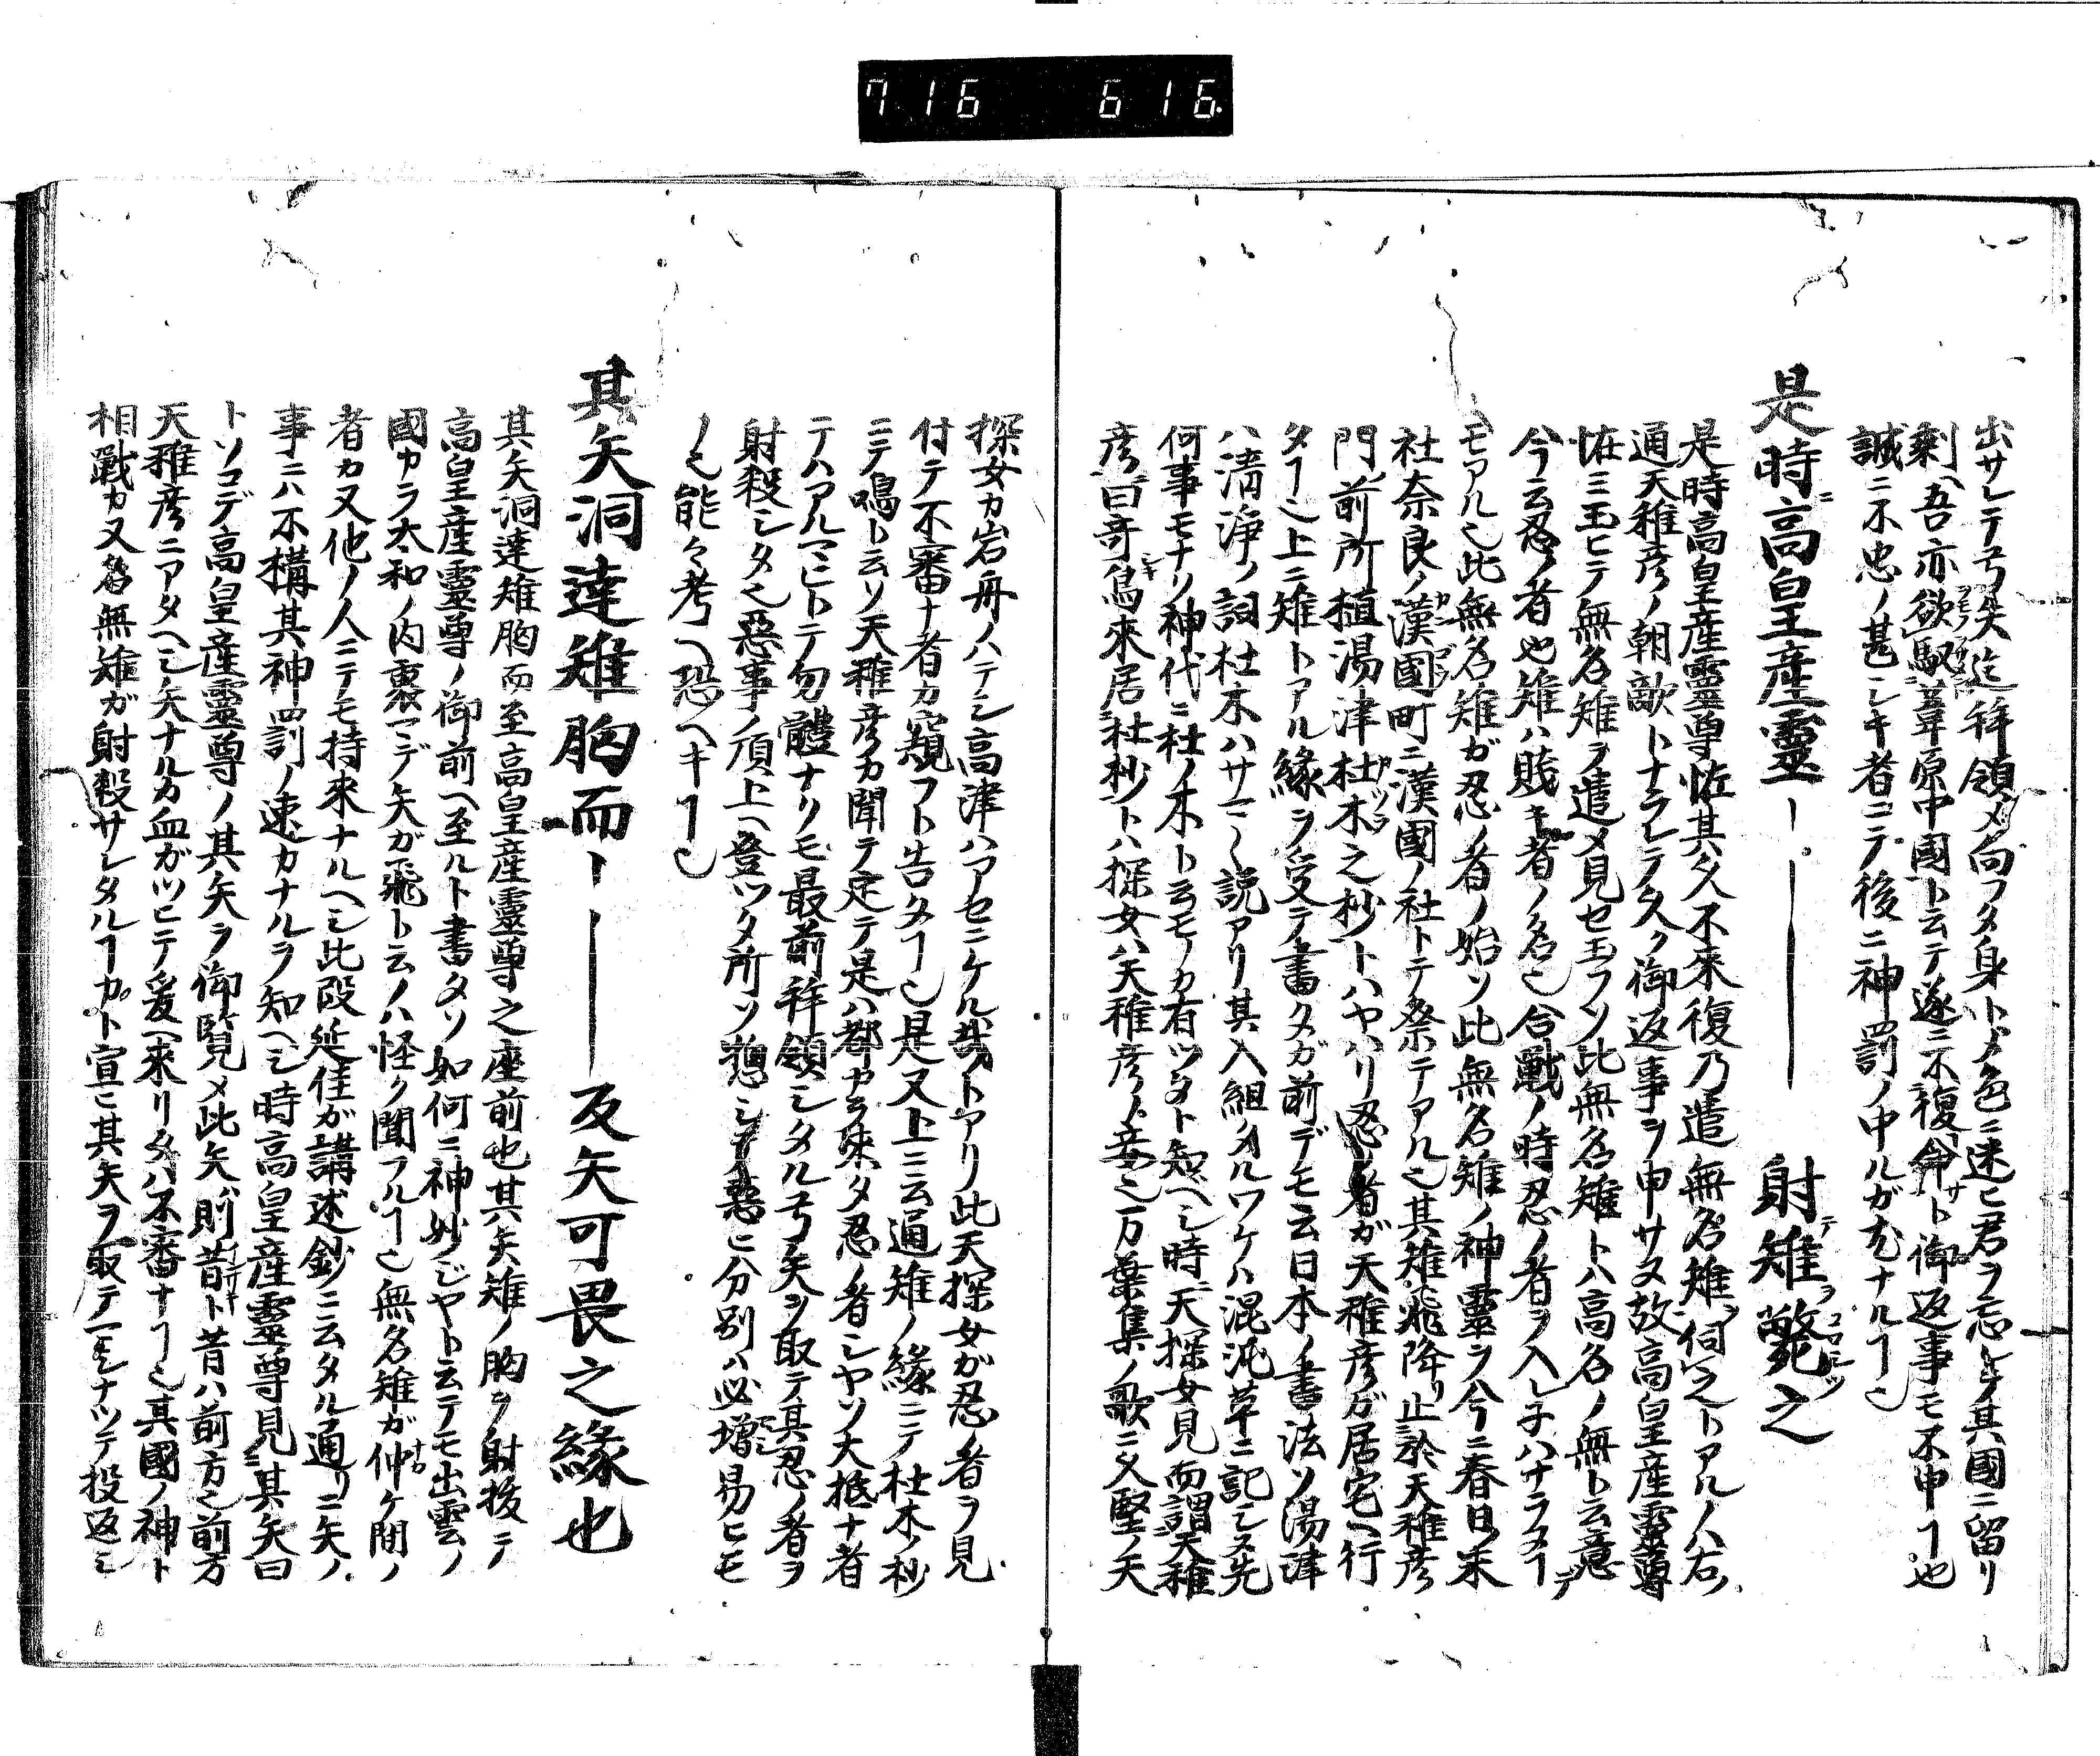 716 616.
出サレテ弓矢迄拝領メ向フタ身トメ色ニ迷ヒ君ヲ忘レ其國ニ留リ
剰ヘ吾亦欲馭葦原中國ト云テ遂ニ不復命サト御返事モ不申ヿ也
誠ニ不忠ノ甚シキ者ニテ後ニ神罰ノ中ルガ尤ナルヿ也
是時ニ高皇産靈ーーー射雉ヲ斃之
是時高皇産靈尊恠其久不來復乃遣無名雉ヲ伺之トアルノハ右ノ
通天稚彦ノ朝敵トナラレテ久ク御返事ヲ申サヌ故高皇産靈尊
恠ミ玉ヒテ無名雉ヲ遣メ見セ玉フソ此無名雉トハ高名ノ無ト云意
今云忍ノ者也雉ハ賎キ者ノ名也合戰ノ時忍ノ者ヲ入レ子ハナラヌヿデ
モアル也此無名雉ガ忍ノ者ノ始ソ此無名雉ノ神靈ヲ今ニ春日ノ末
社奈良ノ漢國町ニ漢國ノ社トテ祭テアル也其雉飛降リ止於天稚彦
門ノ前所植湯津杜木之杪トハヤハリ忍ノ者ガ天稚彦ガ居宅ヘ行
タヿ也上ニ雉トアル縁ヲ受テ書タガ前デモ云日本ノ書法ソ湯津
ハ清浄ノ詞杜木ハサマ〱説アリ其入組タルワケハ混沌草ニ記シヌ先
何事モナリ神代ニ杜ノ木ト云モノカ有ツタト知ヘシ時ニ天探女見而謂天稚
彦ニ曰奇鳥來居杜杪トハ探女ハ天稚彦ノ妾也万葉集ノ歌ニ久堅ノ天
探女カ岩舟ノハテシ高津ハアセニケル哉トアリ此天探女ガ忍ノ者ヲ見
付テ不審ナ者カ窺フト告タヿ也是又上ニ云通雉ノ縁ニテ杜木ノ杪
ニテ鳴ト云ソ天稚彦カ聞テ定テ是ハ都カラ來タ忍ノ者シヤソ大抵ナ者
テハアルマヒトテ勿體ナクモ最前拝領シタル弓矢ヲ取テ其忍ノ者ヲ
射殺シタ也惡事ノ頂上ヘ登ツタ所ソ惣シテ惡ニ分別ハ必増易ヒモ
ノ也能々考ヘ恐ヘキヿ也
其矢洞達雉胸而ーーー反矢可畏之緣也
其矢洞達雉胸而至高皇産靈尊之座前也其矢雉ノ胸ヲ射拔ニノ
高皇産靈尊ノ御前ヘ至ルト書タソ如何ニ神妙ジヤト云テモ出雲ノ
國カラ大和ノ内裏マデ矢ガ飛ト云ノハ怪ク聞フルヿ也無名雉ガ仲ケ間ノ
者カ又他ノ人ニテモ持來ナルヘシ此段延佳ガ講述鈔ニ云タル通リニ矢ノ
事ニハ不構其神罰ノ速カナルヲ知ヘシ時高皇産靈尊見其矢曰
トソコデ高皇産靈尊ノ其矢ヲ御覧メ此矢ハ則昔ト昔ハ前方也前方
天稚彦ニアタヘシ矢ナルカ血ガツヒテ爰ヘ來リタハ不審ナヿ也其國ノ神ト
相戰カ又名無雉ガ射殺サレタルヿカト宣ヒ其矢ヲ取テナツテ投返シ